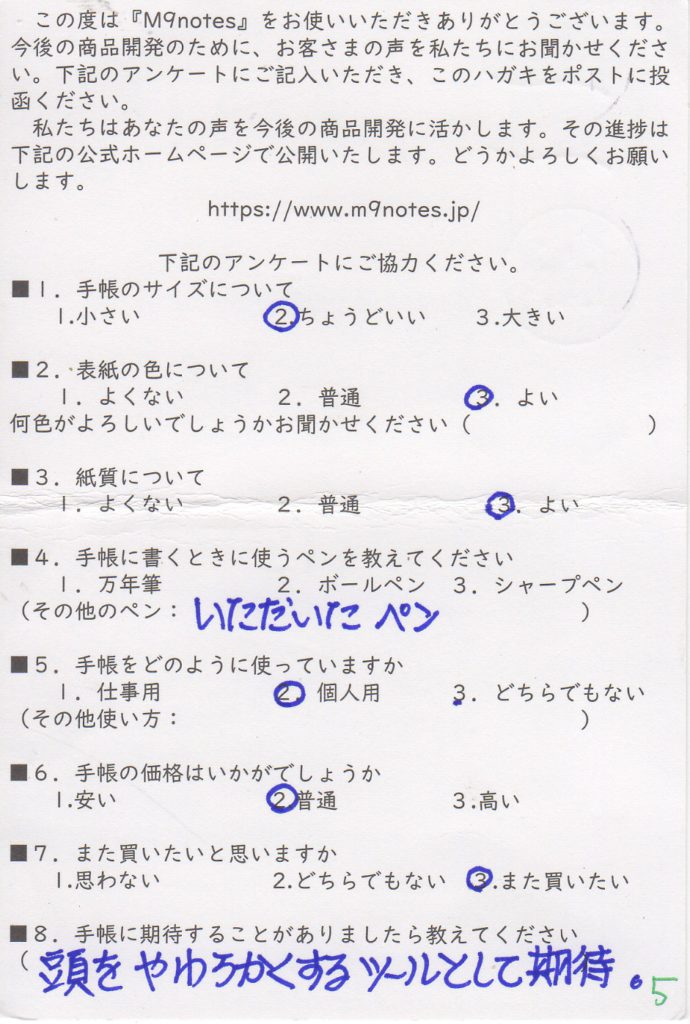 この度は『M9notes』をお使いいただきありがとうございます。
今後の商品開発のために、お客さまの声を私たちにお聞かせくださ
い。下記のアンケートにご記入いただき、このハガキをポストに投
函ください。
私たちはあなたの声を今後の商品開発に活かします。その進捗は
下記の公式ホームページで公開いたします。どうかよろしくお願い
します。
https://www.m9notes.jp/
下記のアンケートにご協力ください。
■1．手帳のサイズについて
1.小さい 2.ちょうどいい 3.大きい
■2．表紙の色について
1．よくない 2．普通 3．よい
何色がよろしいでしょうかお聞かせください（ ）
■3．紙質について
1．よくない 2．普通 3．よい
■4．手帳に書くときに使うペンを教えてください
1．万年筆 2．ボールペン 3．シャープペン
（その他のペン：いただいたペン ）
■5．手帳をどのように使っていますか
1．仕事用 2．個人用 3．どちらでもない
（その他使い方： ）
■6．手帳の価格はいかがでしょうか
1.安い 2.普通 3.高い
■7．また買いたいと思いますか
1.思わない 2.どちらでもない 3.また買いたい
■8．手帳に期待することがありましたら教えてください
（頭をやわらかくするツールとして期待。
5